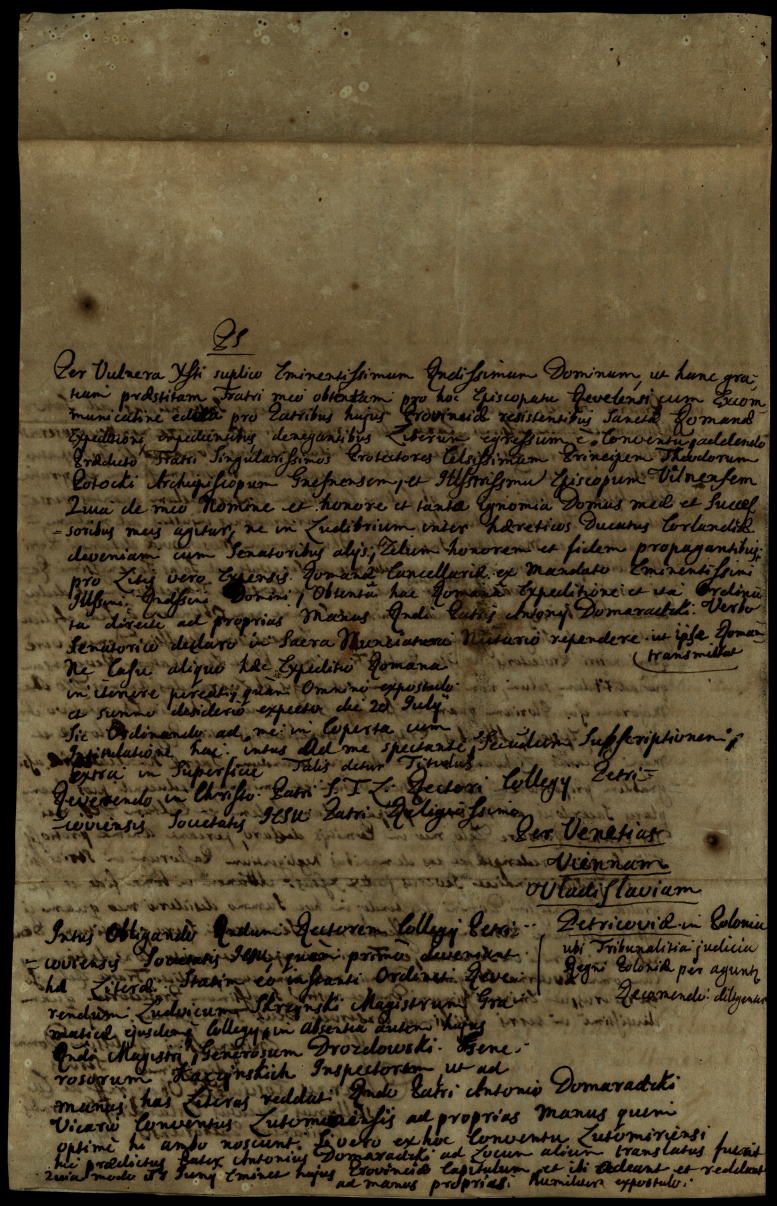 PS
Per Vulnera Xsti suplico Eminentissimum Rndissimum Dominum, ut hanc gra-
tiam præstitam Fratri meo obtentam pro hoc Episcopatu Revelensi cum Excom-
municatione edita pro Patribus hujus Provinciæ resistentibus Sanctæ Romanæ
Expeditioni impedientibus denegantibus Liberum egressum e Conventu
Prædicto Fratri Singularissimos Protectores Celsissimum Principem Theodorum
Potocki Archiepiscopum Gnesnensem, et Illustrissimum Episcopum Vilnensem
Quia de meo Nomine et honore et tanta ignomia Domus meæ et Succes-
=soribus meis agitur, ne in Ludibrium inter hæreticos Ducatus Corlandiæ
deveniam cum Senatoribus alijs, Zelum honorem et fidem propagantibus,
pro Litis vero Expensis Romanæ Cancellariæ ex Mandato Eminentissimi
Illssimi Rndssimi Domini, Obtenta hac Romana Expeditione et ita Ordina-
ta directe ad proprias Manus Rndi Patris Antonij Domaradzki. Verbo
Senatorio declaro in Sacra Nunciatura rependere ut ipse Romam
transmittat
Ne Casu aliquo hæc Expeditio Romana
in itinere pereat, quam Omnino expostulo
et summo desiderio expecto die 20 July
Sic Ordinando ad me in Coperta cum
Intitulatione hac intus ad me spectante, Secundum Subscriptionem,
extra in Superficie Talis detur Titulus
Reverendo in Christo Patri S. T. L. Rectori Collegy Petri=
=coviensis Societatis IESU Patri Religiosissimo
Per Venetias
Viennam
Vladislaviam
Petricoviæ in Polonia
ubi Tribunalitia judicia
Regni Poloniæ per aguntur
Recomendo: diligenter
Intus Obligando Rndum Rectorem Collegy Petri-
-coviensis Societatis IESU, quam primum devenirent
hæ Literæ Statim eo instanti Ordinet Reve-
rendum Ludvicum Magistrum Gra-
maticæ ejusdem Collegy, in absentia autem hujus
Rndi Magistri, Generosum Drozdowski Gene-
rosorum Inspectorem ut ad
manus has Literas reddat Rndo Patri Antonio Domaradzki
Vicario Conventus Lutomiriensis ad proprias Manus quem
optime hi ambo noscunt. Si vero ex hoc Conventu Lutomiriensi
hic prædictus Pater Antonius Domaradzki ad Locum alium translatus fuerit
Quia modo Juny Eminet hujus Provinciæ Capitulum, et ibi adeant et reddant
ad manus proprias humilime expostulo.